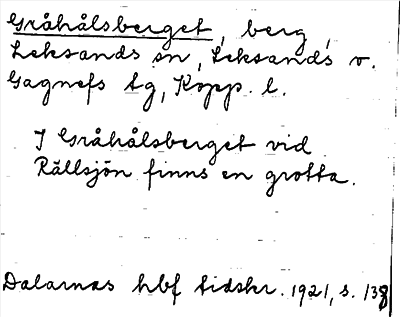 Gråhålsberget, berg,
Leksands sn, Leksands o.
Gagnefs tg, Kopp. l.
I Gråhålsberget vid
Rällsjön finns en grotta.
Dalarnas hbf tidskr. 1921, s. 138